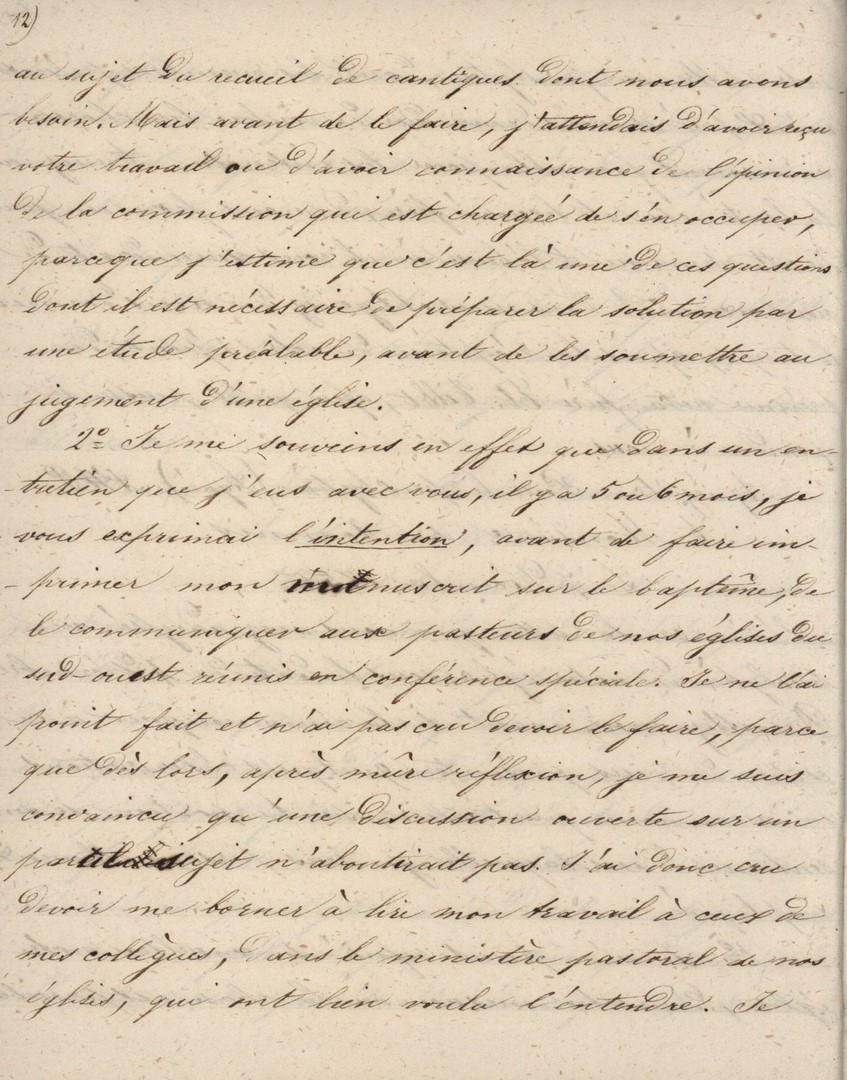 12)
au sujet du recueil de cantiques dont nous avons
besoin. Mais avant de le faire, j'attendais d'avoir reçu
votre travail ou d'avoir connaissance de l'opinion
de la commission qui est chargée de s'en occuper,
parceque j'estime que c'est là une de ces questions
dont il est nécessaire de préparer la solution par
une étude préalable, avant de les soumettre au
jugement d'une église.
2º Je me souviens en effet que dans un en-
-tretien que j'eus avec vous, il y a 5 ou 6 mois, je
vous exprimai l'intention, avant de faire im-
-primer mon manuscrit sur le baptême, de
le communiquer aux pasteurs de nos églises du
sud-ouest réunis en conférence spéciale. Je ne l'ai
point fait et n'ai pas cru devoir le faire, parce
que dès lors, après mûre réflexion, je me suis
convaincu qu'une discussion ouverte sur un
pareil sujet n'aboutirait pas. J'ai donc cru
devoir me borner à lire mon travail à ceux de
mes collègues, dans le ministère pastoral de nos
églises, qui ont bien voulu l'entendre. Je